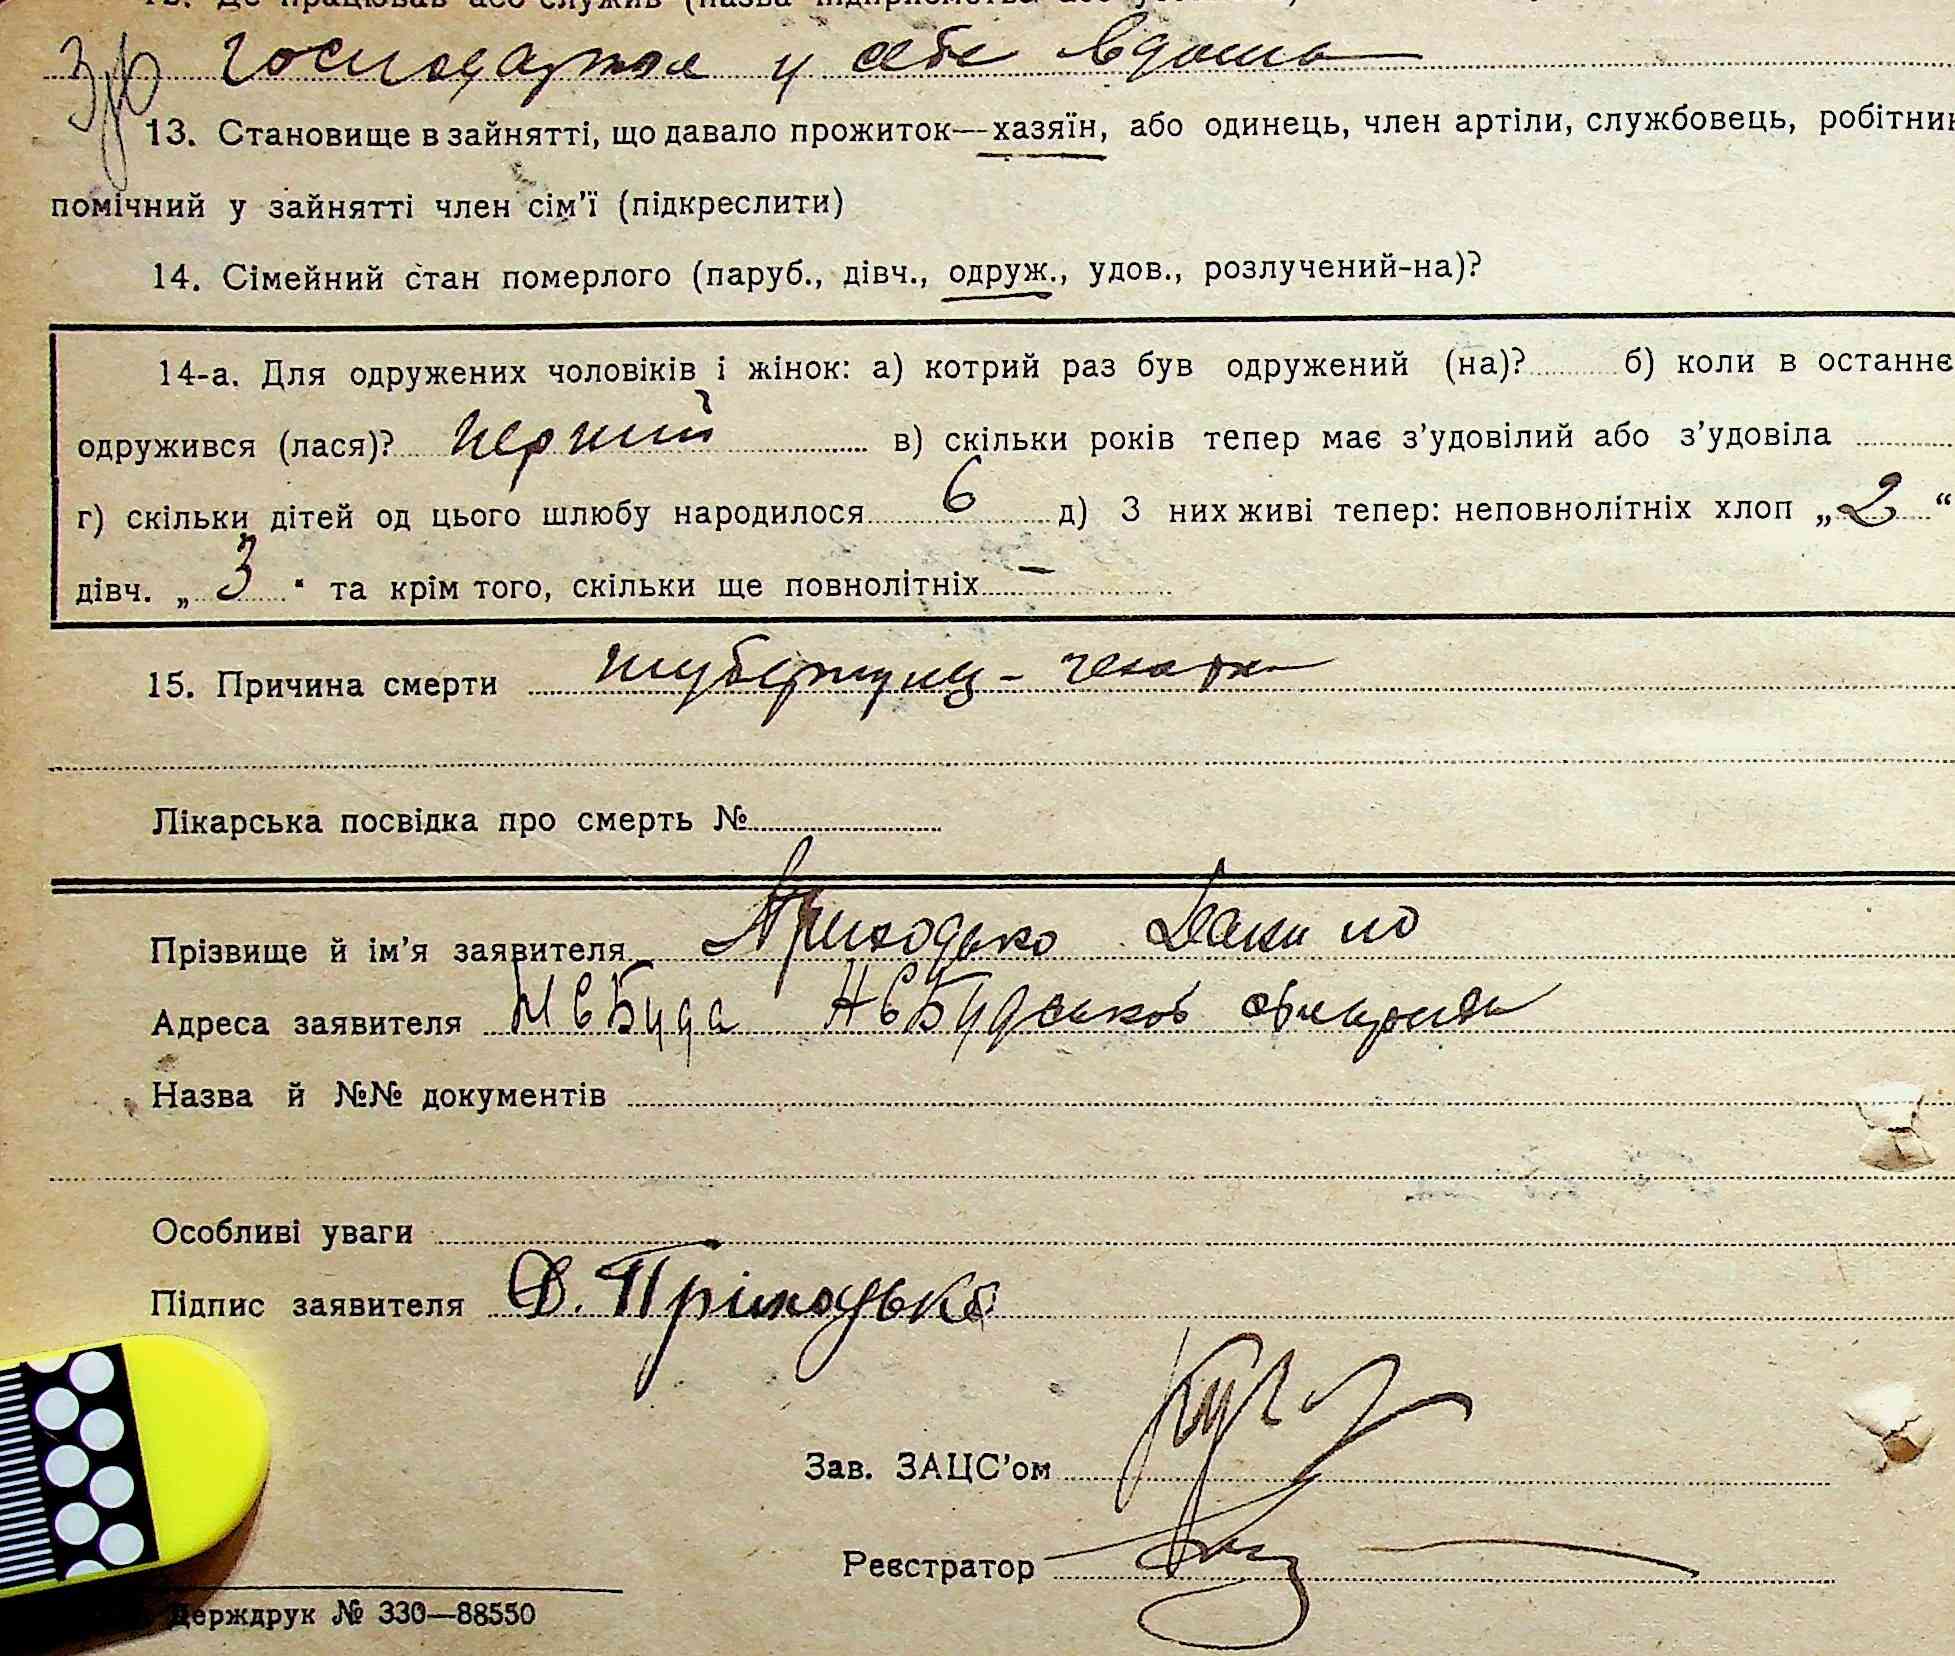 12. Де працював або служив (назва підприємства або
господарював у себе вдома
13. Становище в зайнятті, що давало прожиток—хазяїн, або одинець, член артіли, службовець, робітник
помічний у зайнятті член сім'ї (підкреслити)
14. Сімейний стан померлого (паруб., дівч., одруж., удов., розлучений-на)?
14-а. Для одружених чоловіків і жінок: а) котрий раз був одружений (на)? б) коли в останнє
одружився (лася)? перший в) скільки років тепер має з'удовілий або з'удовіла
г) скільки дітей од цього шлюбу народилося 6 д) З них живі тепер: неповнолітніх хлоп „2“
дівч. „3“ та крім того, скільки ще повнолітніх —
15. Причина смерти туберкульоз -
Лікарська посвідка про смерть №
Прізвище й ім'я заявителя Приходько Данило
Адреса заявителя Буда
Назва й №№ документів
Особливі уваги
Підпис заявителя Д. Пріходько
Зав. ЗАЦС'ом
Реєстратор
Держдрук № 330—88550